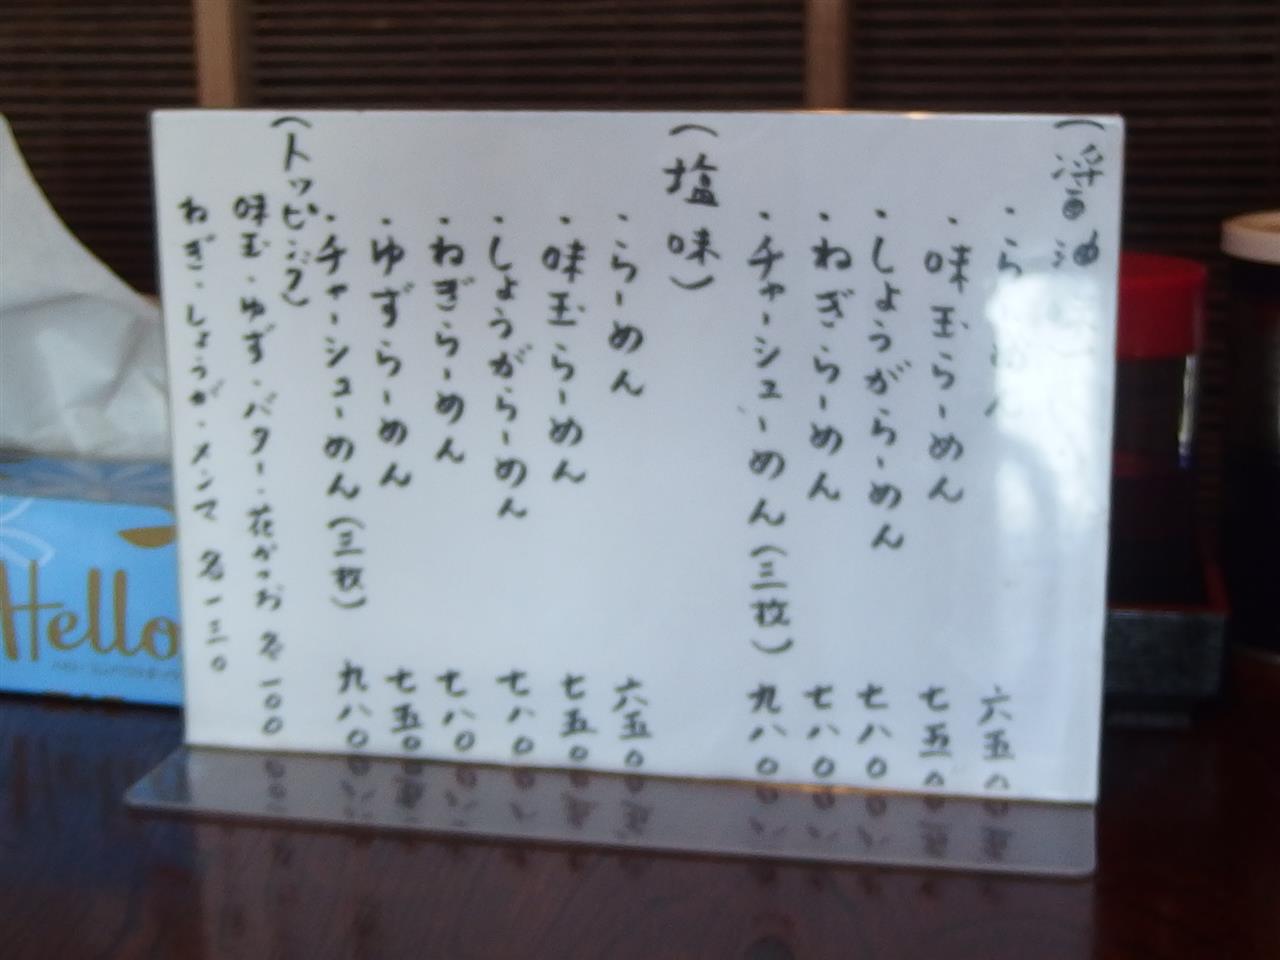 (醤油味)
・らーめん 六五〇
・味玉らーめん 七五〇
・しょうがらーめん 七八〇
・ねぎらーめん 七八〇
・チャーシューめん(三枚) 九八〇
(塩味)
・らーめん 六五〇
・味玉らーめん 七五〇
・しょうがらーめん 七八〇
・ねぎらーめん 七八〇
・ゆずらーめん 七五〇
・チャーシューめん(三枚) 九八〇
(トッピング)
味玉・ゆず・バター・花がつお 各一〇〇
ねぎ・しょうが・メンマ 各一三〇
Hello